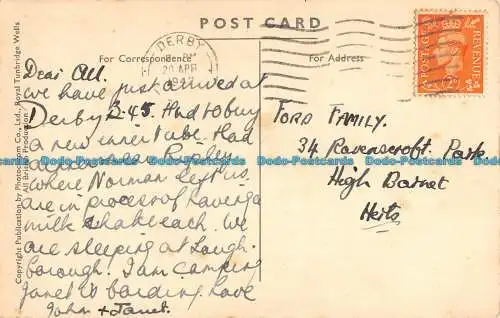 POST CARD
For Correspondence
For Address
DERBY
20 APR
POSTAGE
REVENUE
Dear All.
We have just arrived at
Derby 2-45. Had to buy
a new inner tube. Had
where Norman left us.
are in process of having a
milk shake each. We
are sleeping at Lough-
borough. I am camping
Janet is boarding. Love
John + Janet.
FORD FAMILY.
34 Ravenscroft Park
High Barnet
Herts
Copyright Publication by Photochrom Co., Ltd., Royal Tunbridge Wells
All British Production
Dodo-Postcards.com